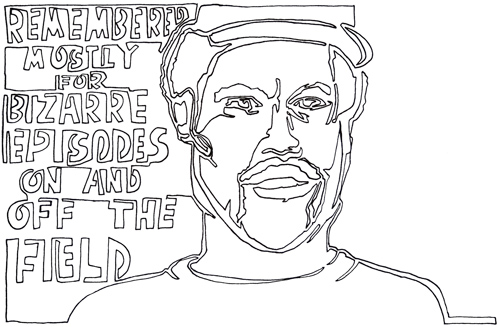 REMEMBERED
MOSTLY
FOR
BIZARRE
EPISODES
ON AND
OFF THE
FIELD